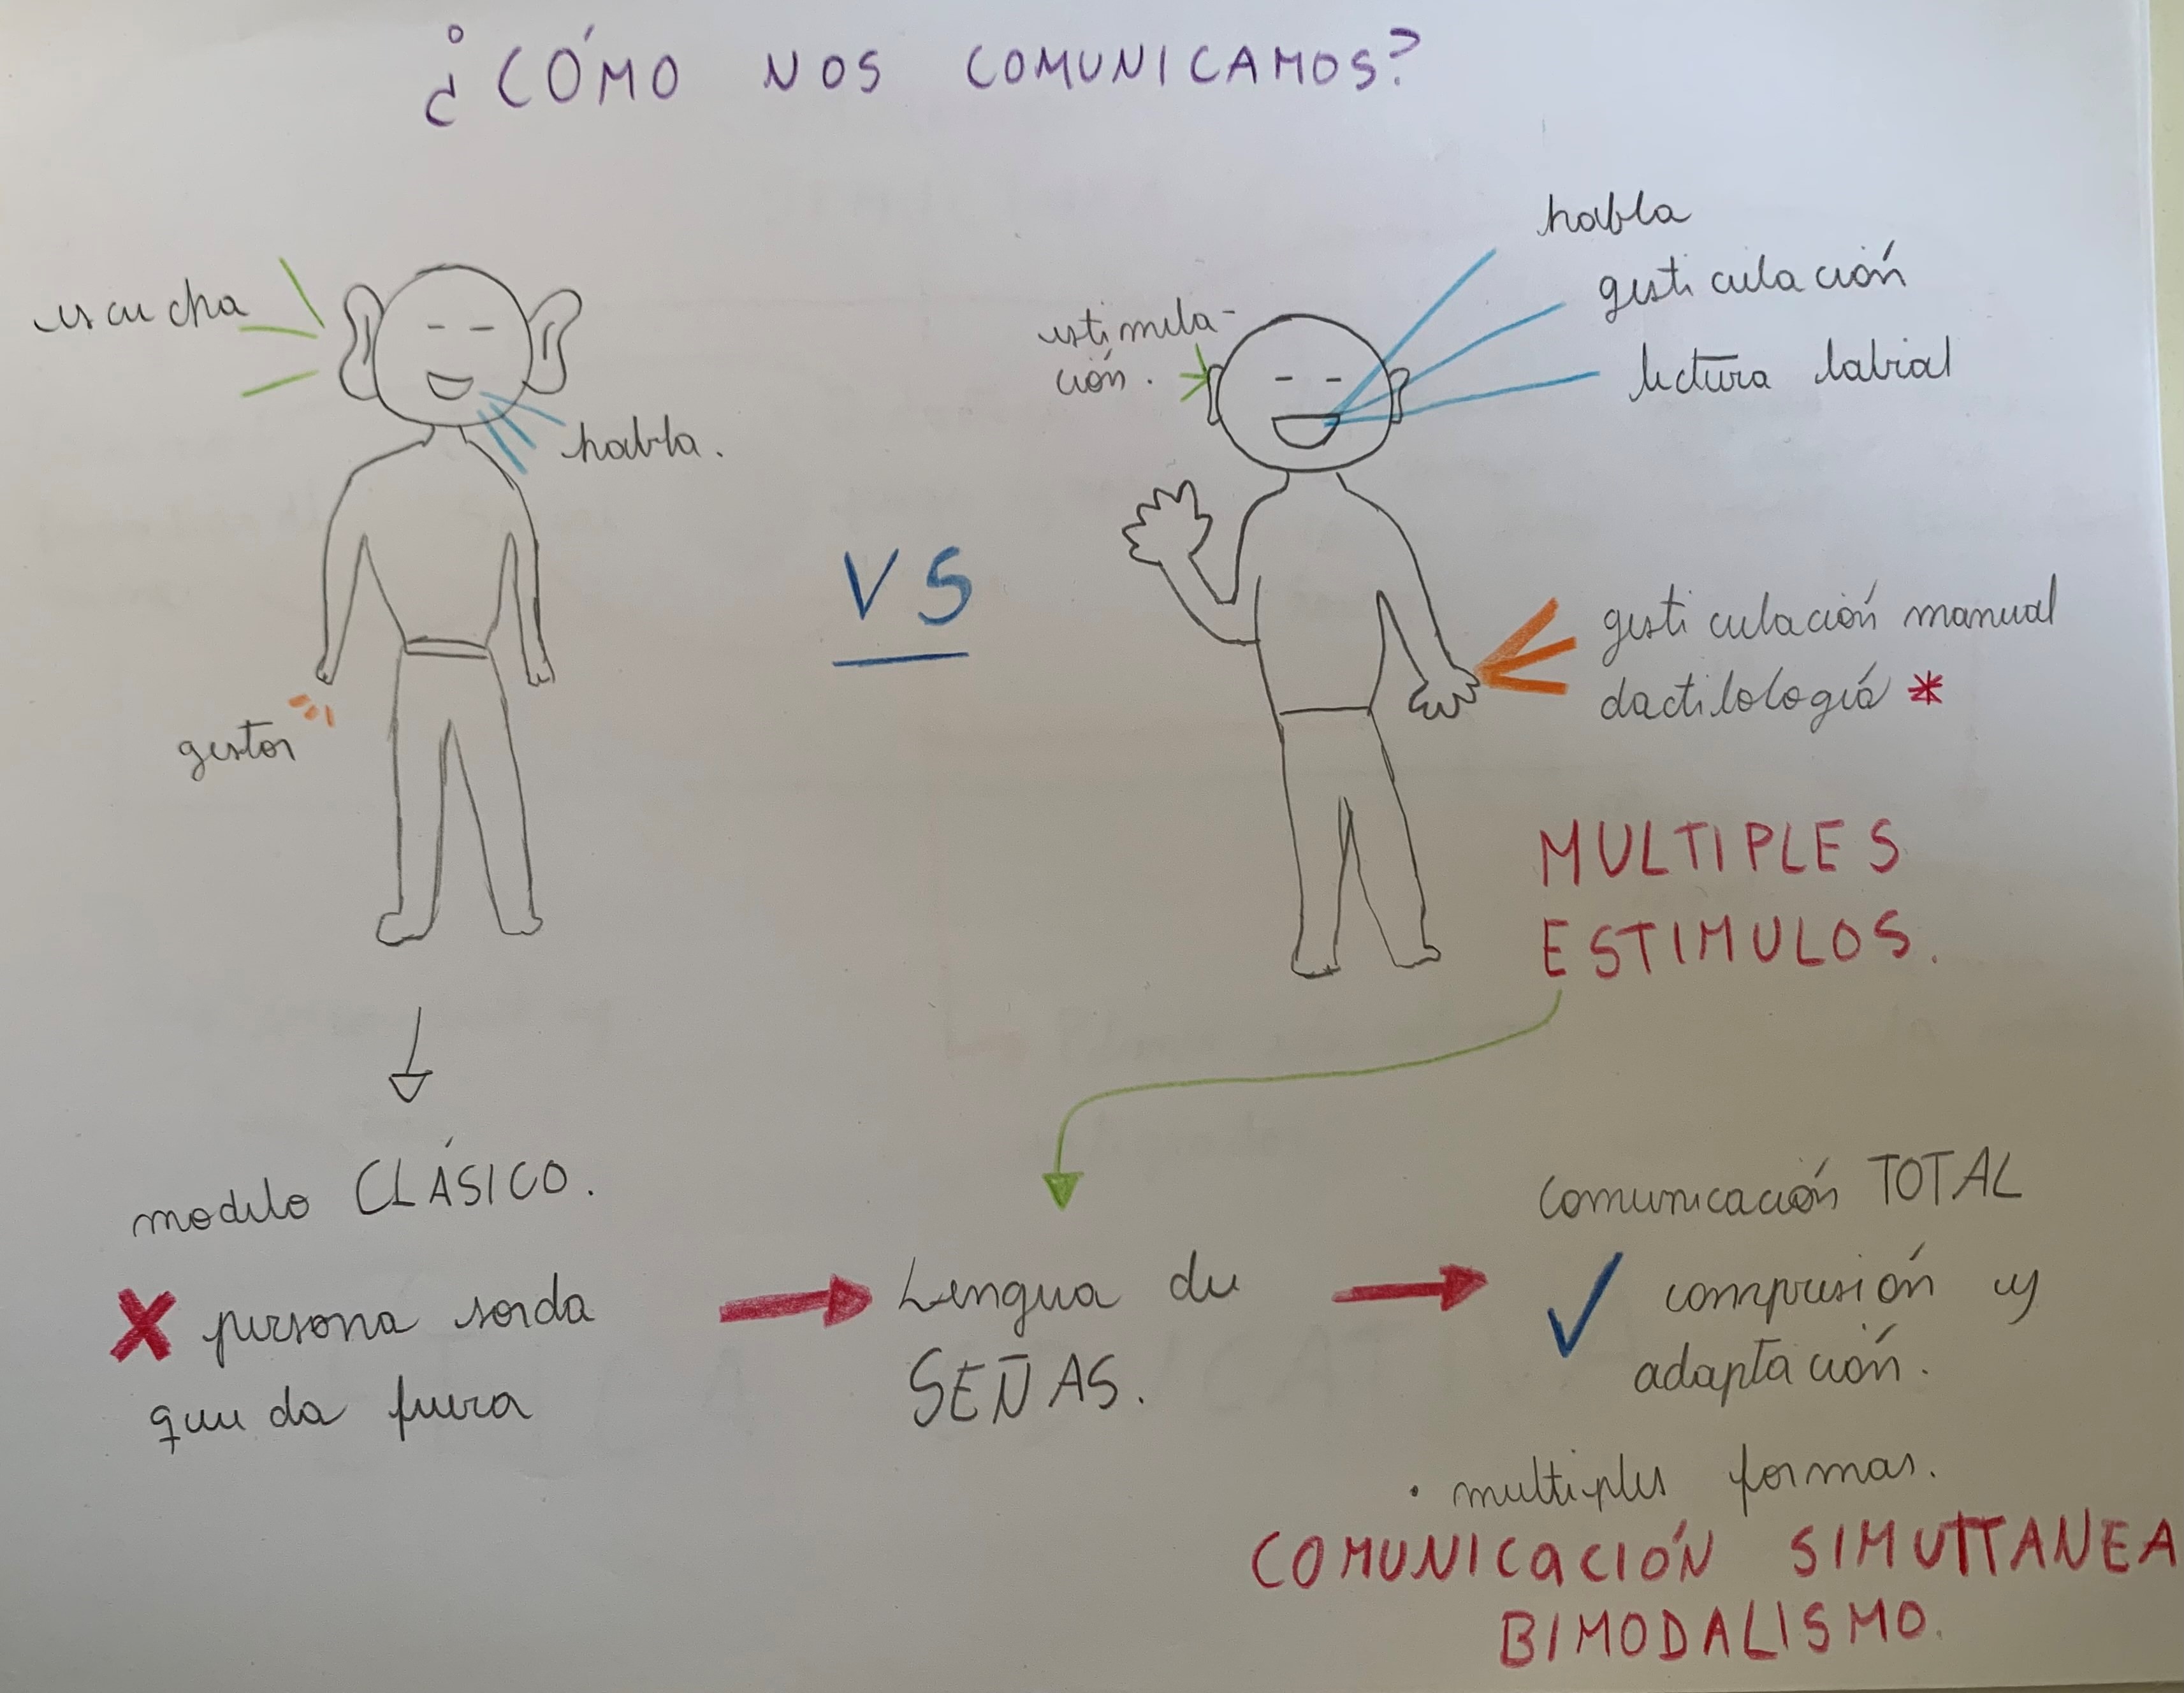 ¿CÓMO NOS COMUNICAMOS?
escucha
habla.
gestos
VS
estimula-
ción.
habla
gesticulación
lectura labial
gesticulación manual
dactilología *
MULTIPLES
ESTIMULOS.
modelo CLÁSICO.
X persona sorda
queda fuera
Lengua de
SEÑAS.
Comunicación TOTAL
✓ compresión y
adaptación.
• multiples formas.
COMUNICACIÓN SIMULTANEA
BIMODALISMO.